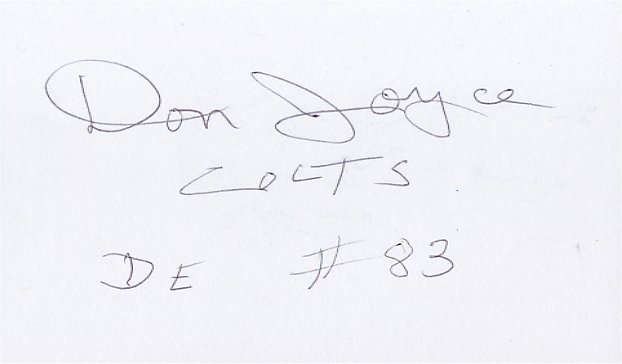 Don Joyce
COLTS
DE #83